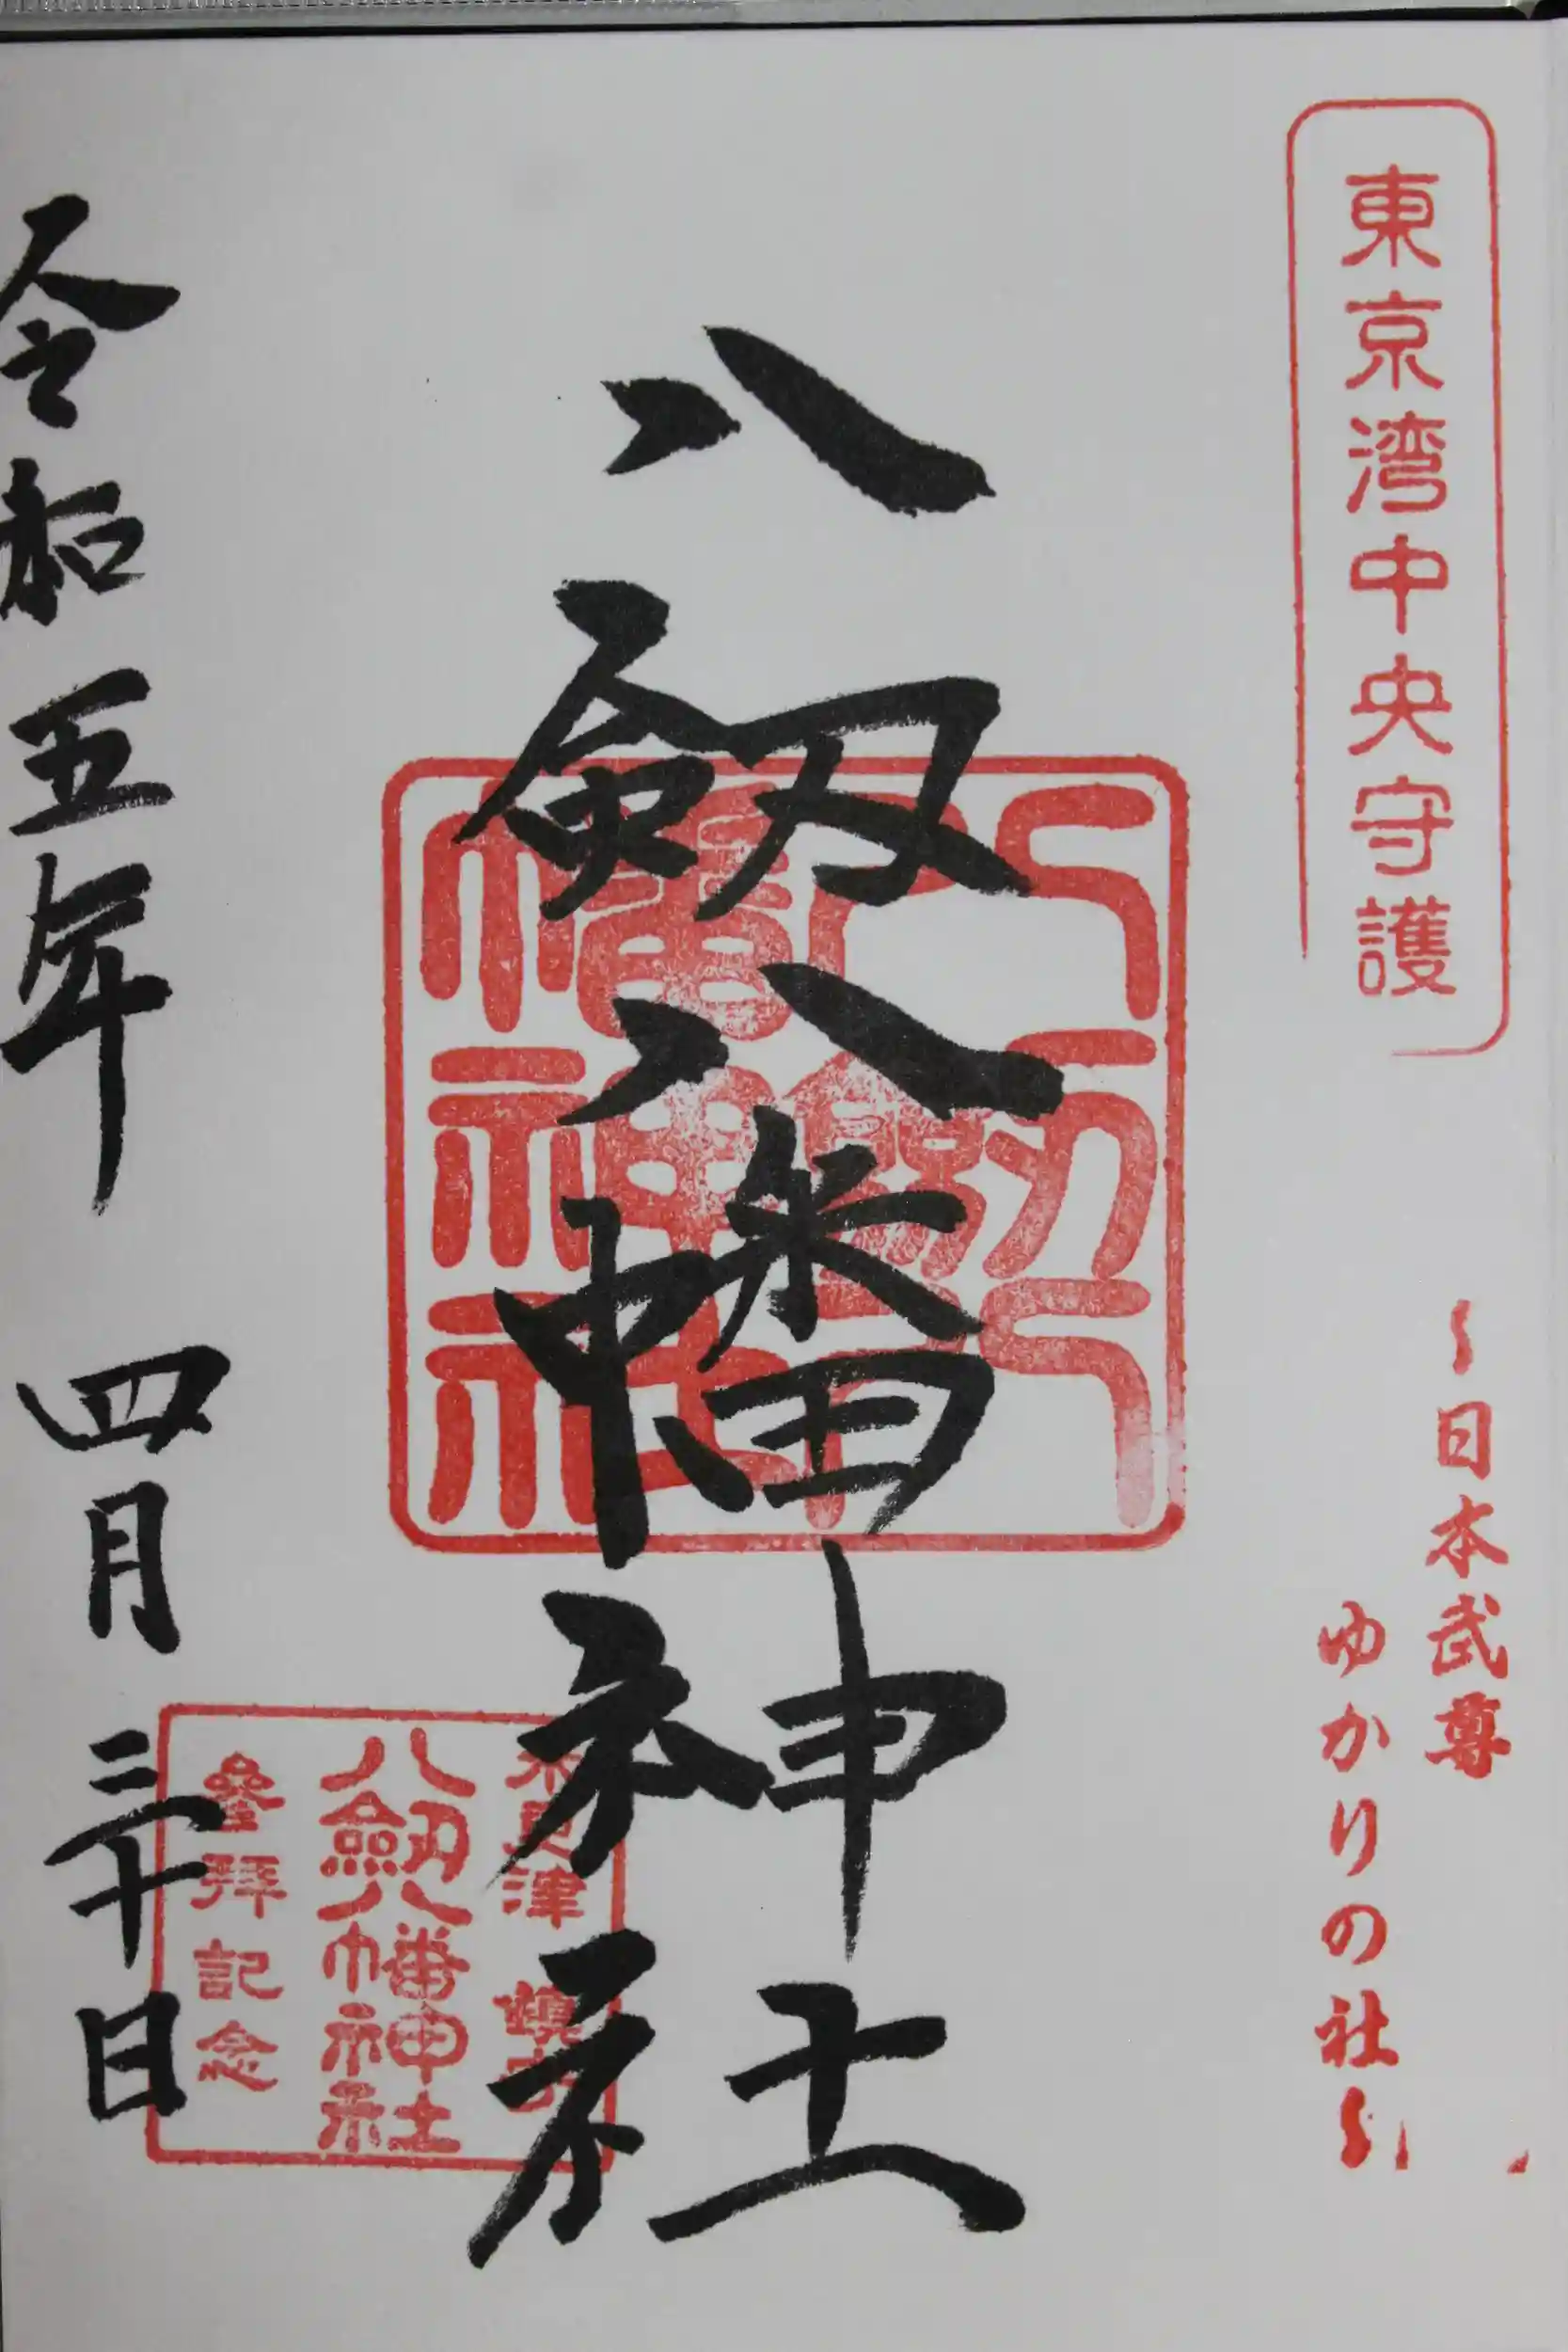 東京湾中央守護
~日本武尊
ゆかりの社~
八剱八幡神社
八剱八幡神社
木更津 鎮守
八剱八幡神社
參拜記念
令和五年 四月三十日